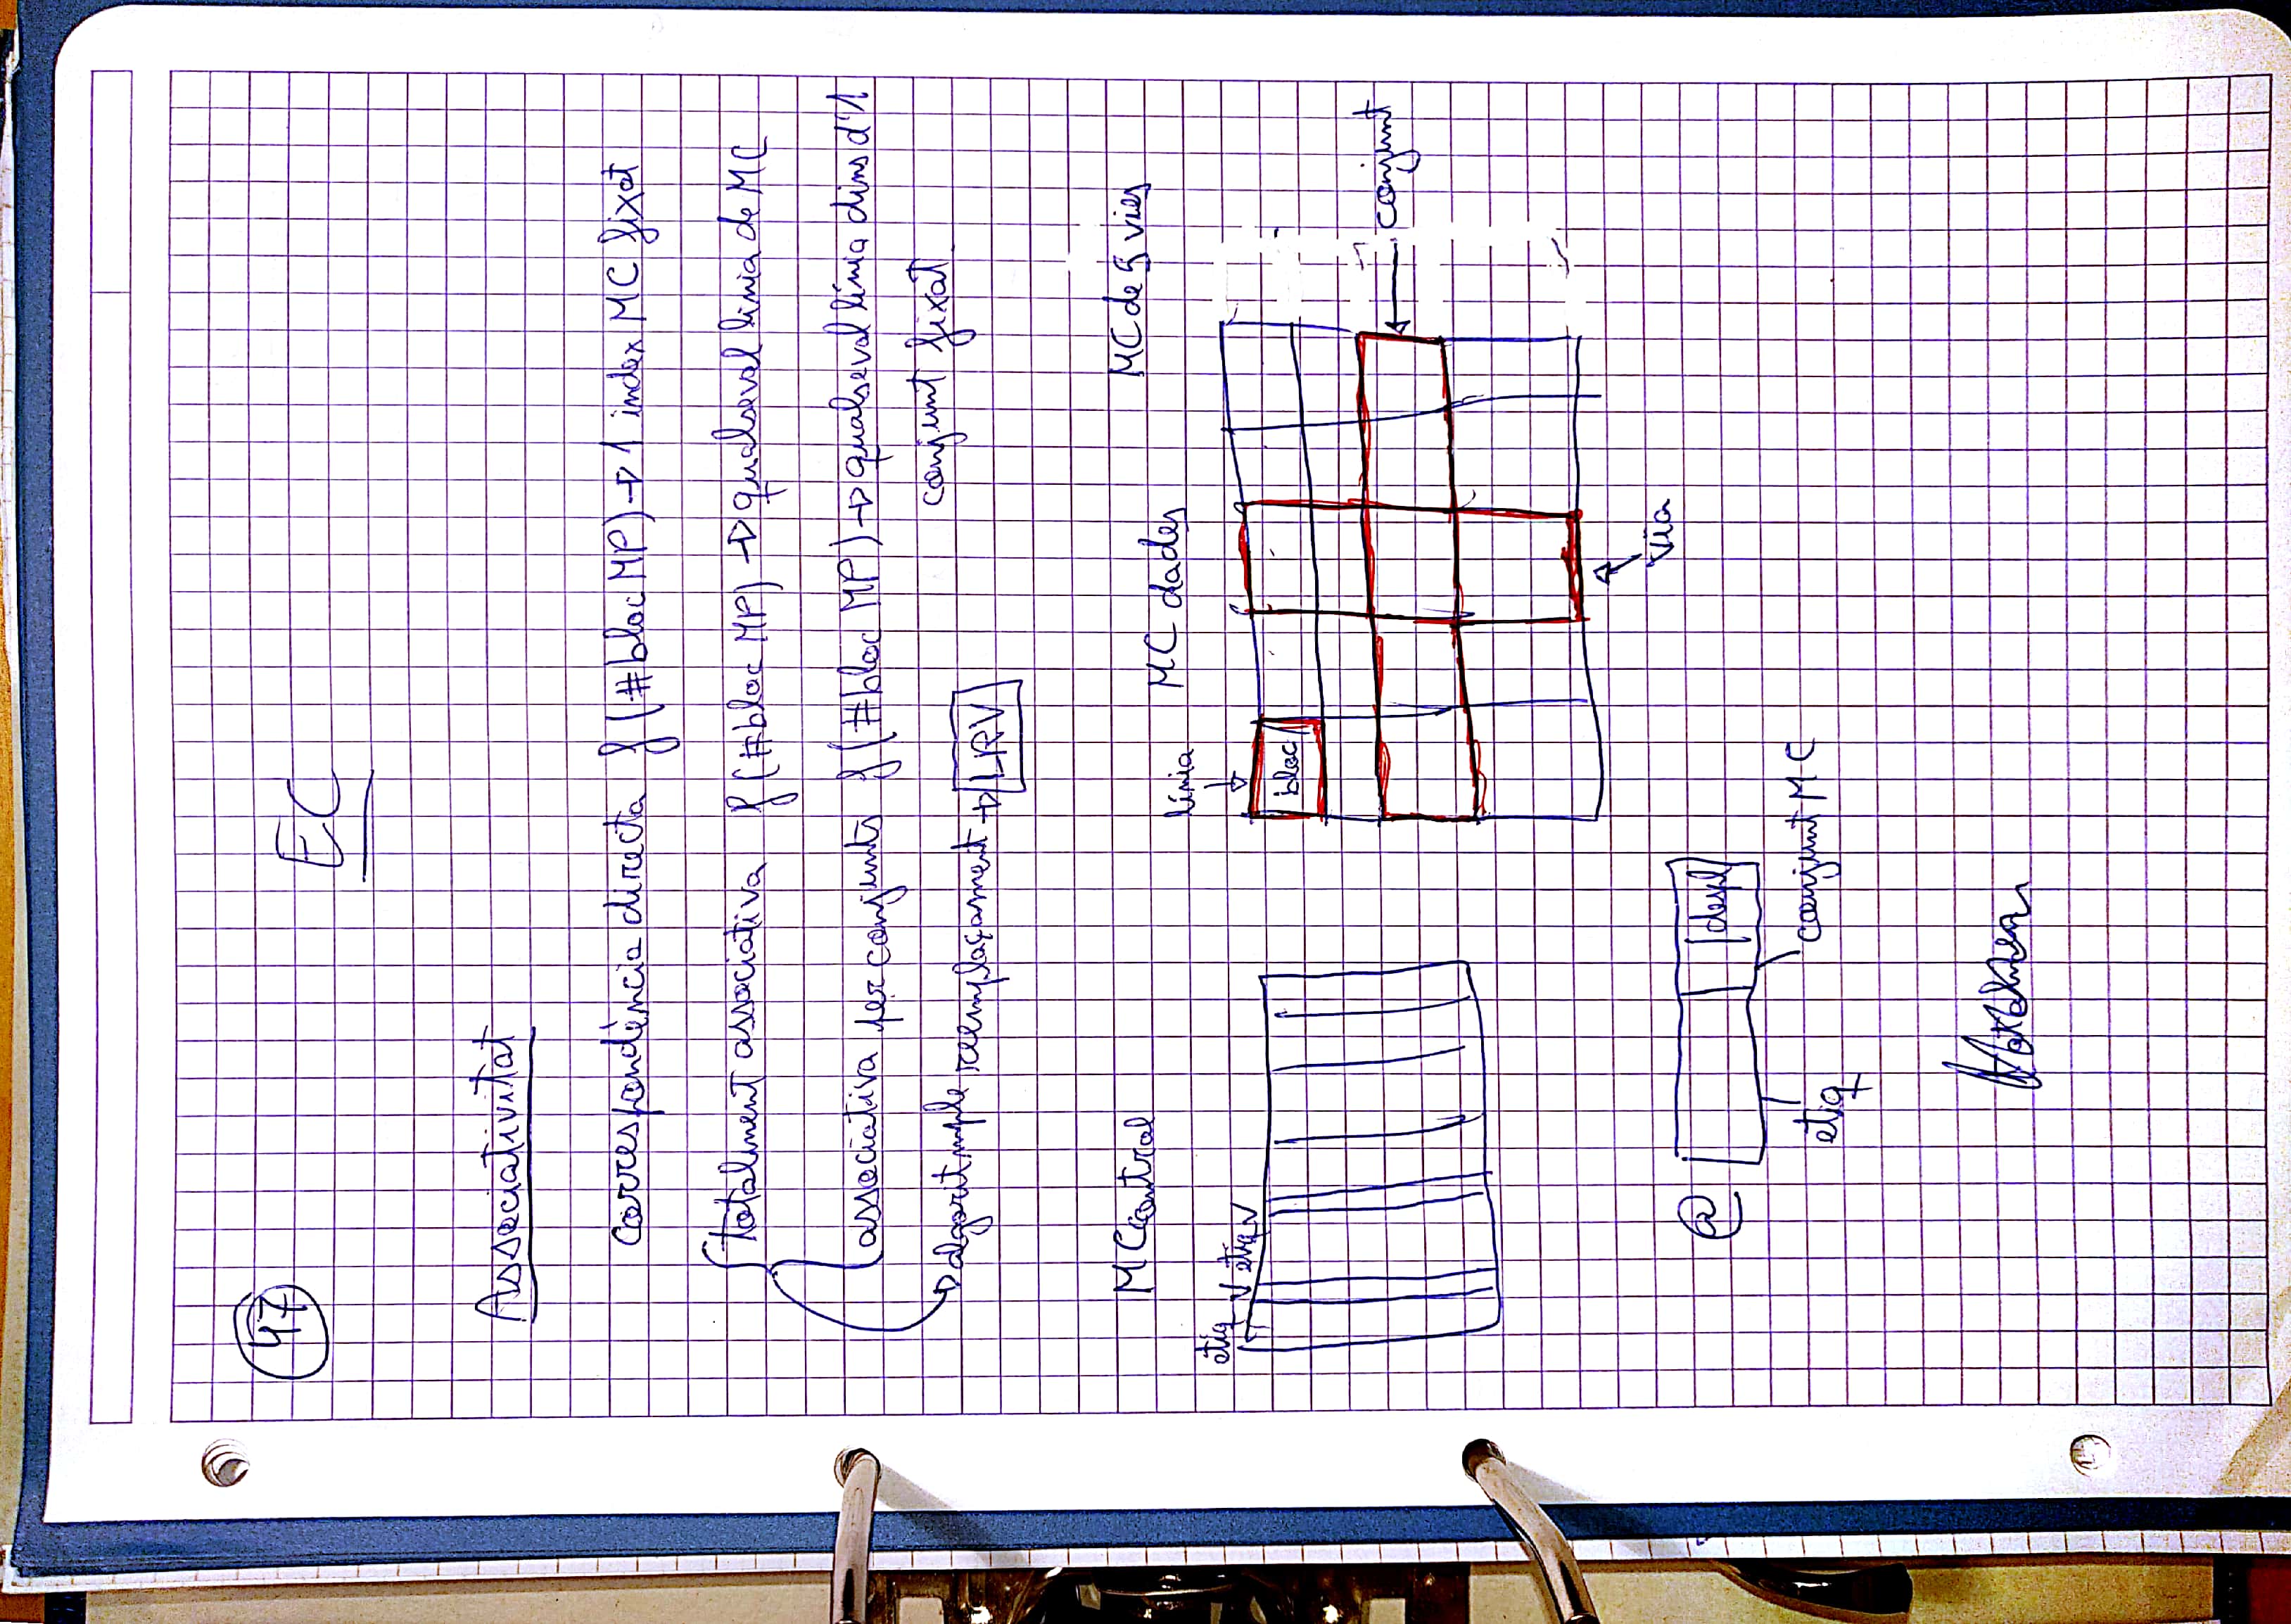 47
EC
Associativitat
correspondència directa f(#bloc MP) → 1 index MC fixat
totalment associativa f(#bloc MP) → qualseval linia de MC
associativa per conjunts f(#bloc MP) → qualseval línia dins d'1
conjunt fixat
algoritmple reemplaçament → LRV
MC control
MC dades
MC de 5 vies
línia
etiq V etiq V
bloc
conjunt
via
@ despl
etiq
conjunt MC